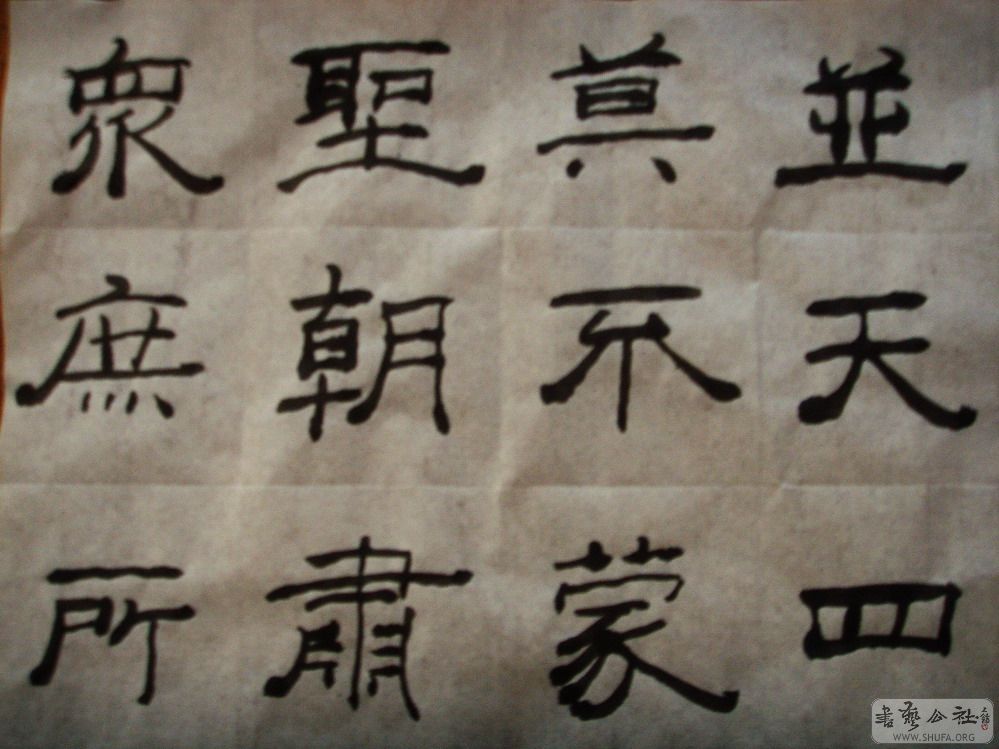 並天四
莫不蒙
聖朝肅
眾庶所
書藝公社
WWW.SHUFA.ORG